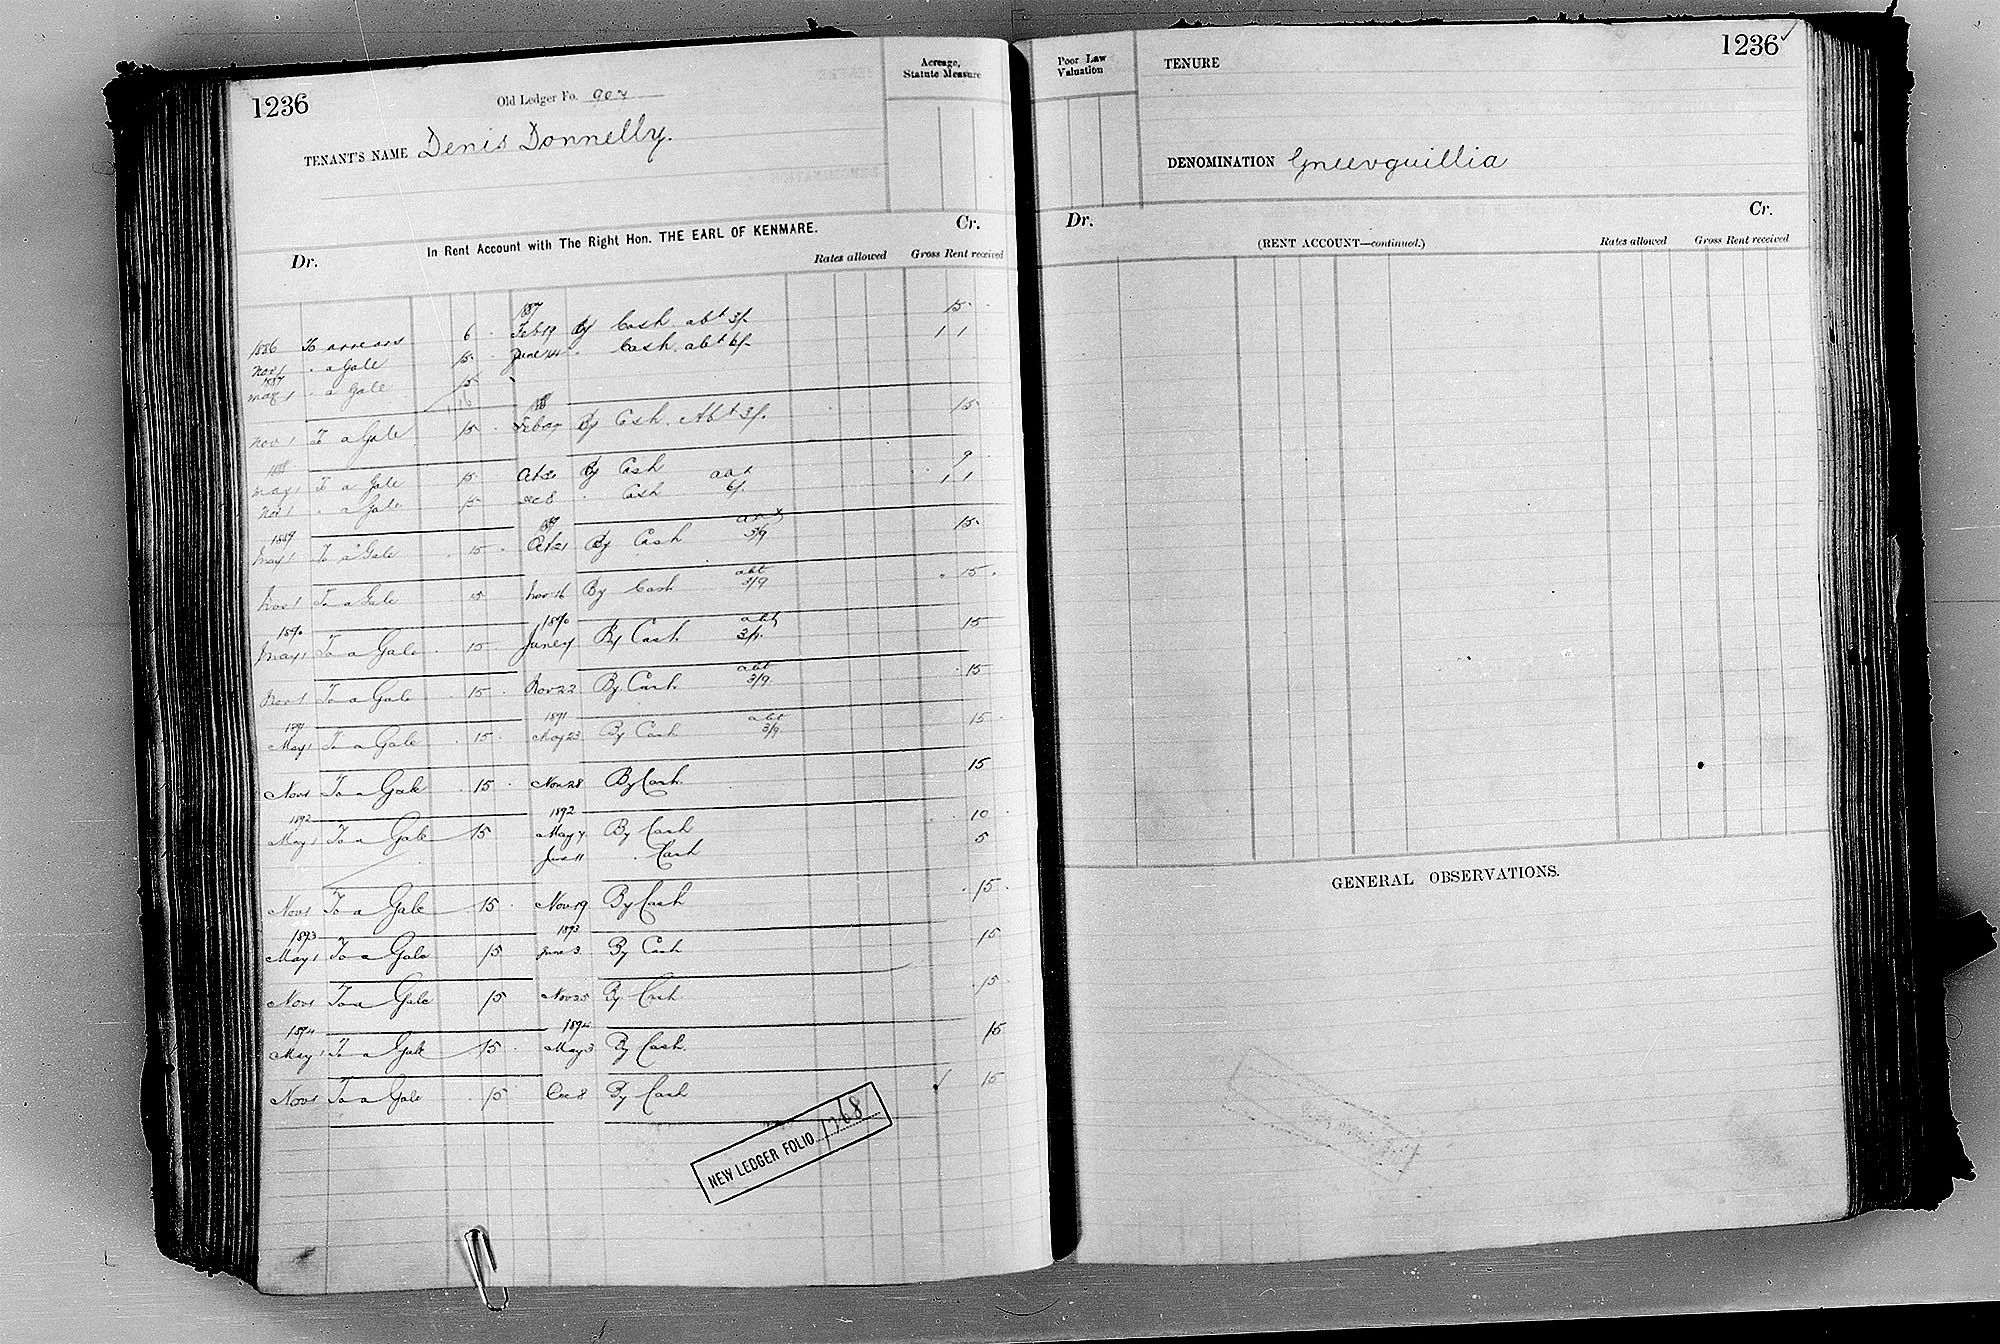 1236
Old Ledger Fo. 907
TENANT'S NAME Denis Donnelly.
Acreage,
Statute Measure
In Rent Account with The Right Hon. THE EARL OF KENMARE.
Dr. Cr.
Rates allowed Gross Rent received
1887
1886 To arrears 6 Feb 19 By Cash abt 3/- 15
Nov 1 " a Gale 15 June 24 " Cash abt 6/- 1 1
1887
May 1 " a Gale 15
1 16
188
Nov 1 To a Gale 15 Feb By Cash. Abt 3/. 15
1888
May 1 To a Gale 15 Oct 20 By Cash 9
Nov 1 " a Gale 15 Dec 8 " Cash abt 6/. 1 1
1889 1889
May 1 To a Gale 15 Oct 21 By Cash abt 3/9 15
Nov 1 To a Gale 15 Nov 16 By Cash abt 3/9 15
1890 1890
May 1 To a Gale 15 June 7 By Cash abt 3/9. 15
Nov 1 To a Gale 15 Nov 22 By Cash abt 3/9. 15
1891 1891
May 1 To a Gale 15 May 23 By Cash abt 3/9. 15
Nov 1 To a Gale 15 Nov 28 By Cash. 15
1892 1892
May 1 To a Gale 15 May 7 By Cash 10
June 11 " Cash 5
Nov 1 To a Gale 15 Nov 19 By Cash 15
1893 1893
May 1 To a Gale 15 June 3 By Cash 15
Nov 1 To a Gale 15 Nov 25 By Cash 15
1894 1894
May 1 To a Gale 15 May 3 By Cash. 15
Nov 1 To a Gale 15 Dec 8 By Cash 15
NEW LEDGER FOLIO 1268
1236
Poor Law
Valuation
TENURE
DENOMINATION Gneevguillia
Dr. Cr.
(RENT ACCOUNT—continued.) Rates allowed Gross Rent received
GENERAL OBSERVATIONS.